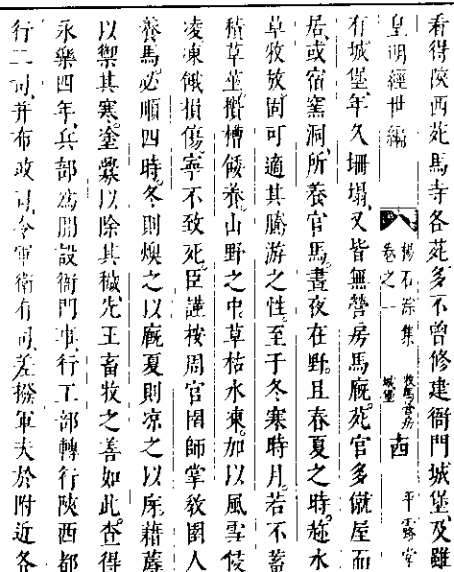 看得陝西苑馬寺各苑多不曾修建衙門城堡及雖
皇明經世編
楊石淙集
卷之一
牧馬營房
城堡
平露堂
有城堡年久坍塌又皆無營房馬廐苑官多僦屋而
居或宿窰洞所養官馬晝夜在野且春夏之時趂水
草牧放固可適其騰游之性至于冬寒時月若不蓄
積草堃攢槽餧養山野之中草枯水凍加以風雪侵
凌凍餓損傷寧不致死臣謹按周官圉師掌敎圉人
養馬必順四時冬則燠之以廐夏則凉之以庌藉蓐
以禦其寒塗釁以除其穢先王畜牧之善如此查得
永樂四年兵部為開設衙門事行工部轉行陝西都
行二司并布政司令軍衛有司差撥軍夫於附近各